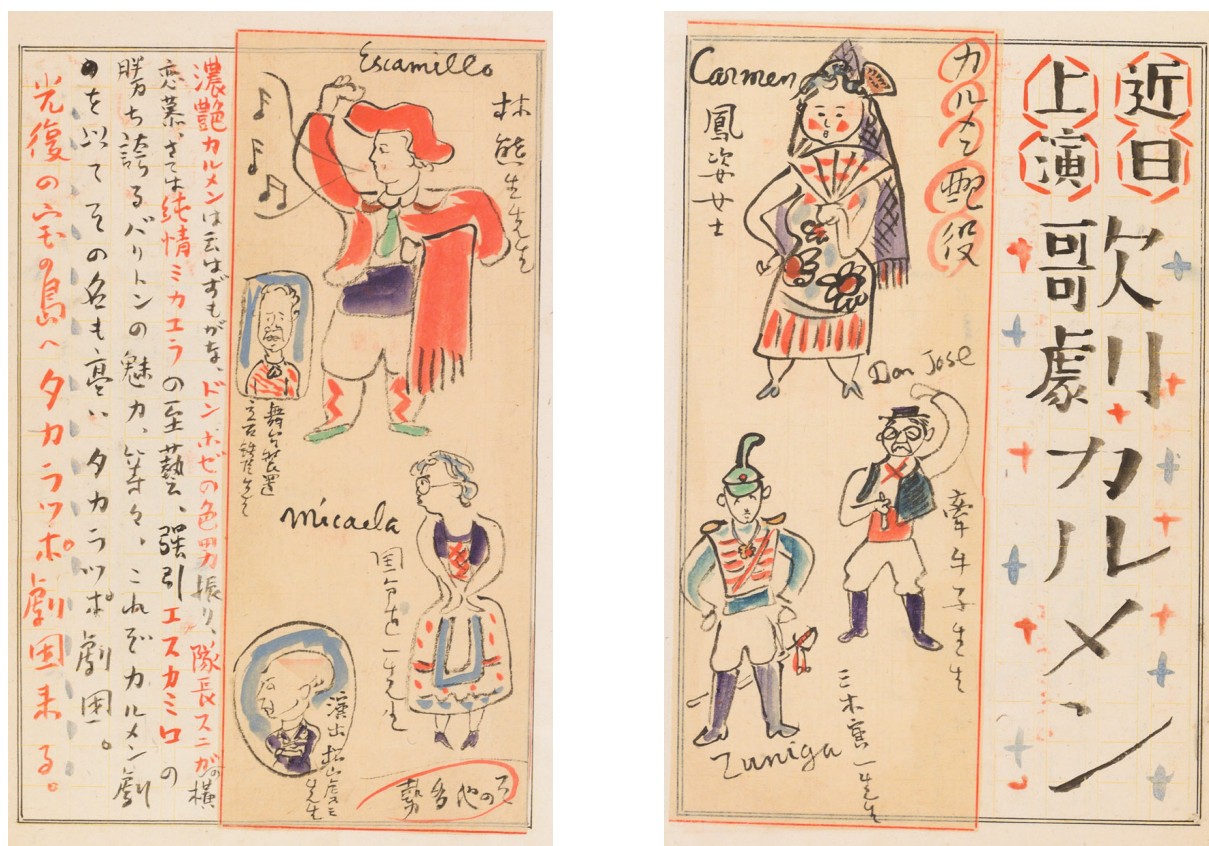 近日
上演
歌劇カルメン
カルメン配役
Carmen
鳳姿女士
Don José
牽牛子先生
Zuniga
三木寅一先生
Escamillo
林熊生先生
舞台装置
立石鐵臣先生
Micaela
国分直一先生
演出 松山虔三先生
其の他多勢
濃艶カルメンは云はずもがな、ドン・ホゼの色男振り、隊長スニガの横
恋慕、さては純情ミカエラの至藝、強引エスカミロの
勝ち誇るバリトンの魅力、等々、これぞカルメン劇
のを以てその名も高いタカラツポ劇団。
光復の宝の島へタカラツポ劇団来る。